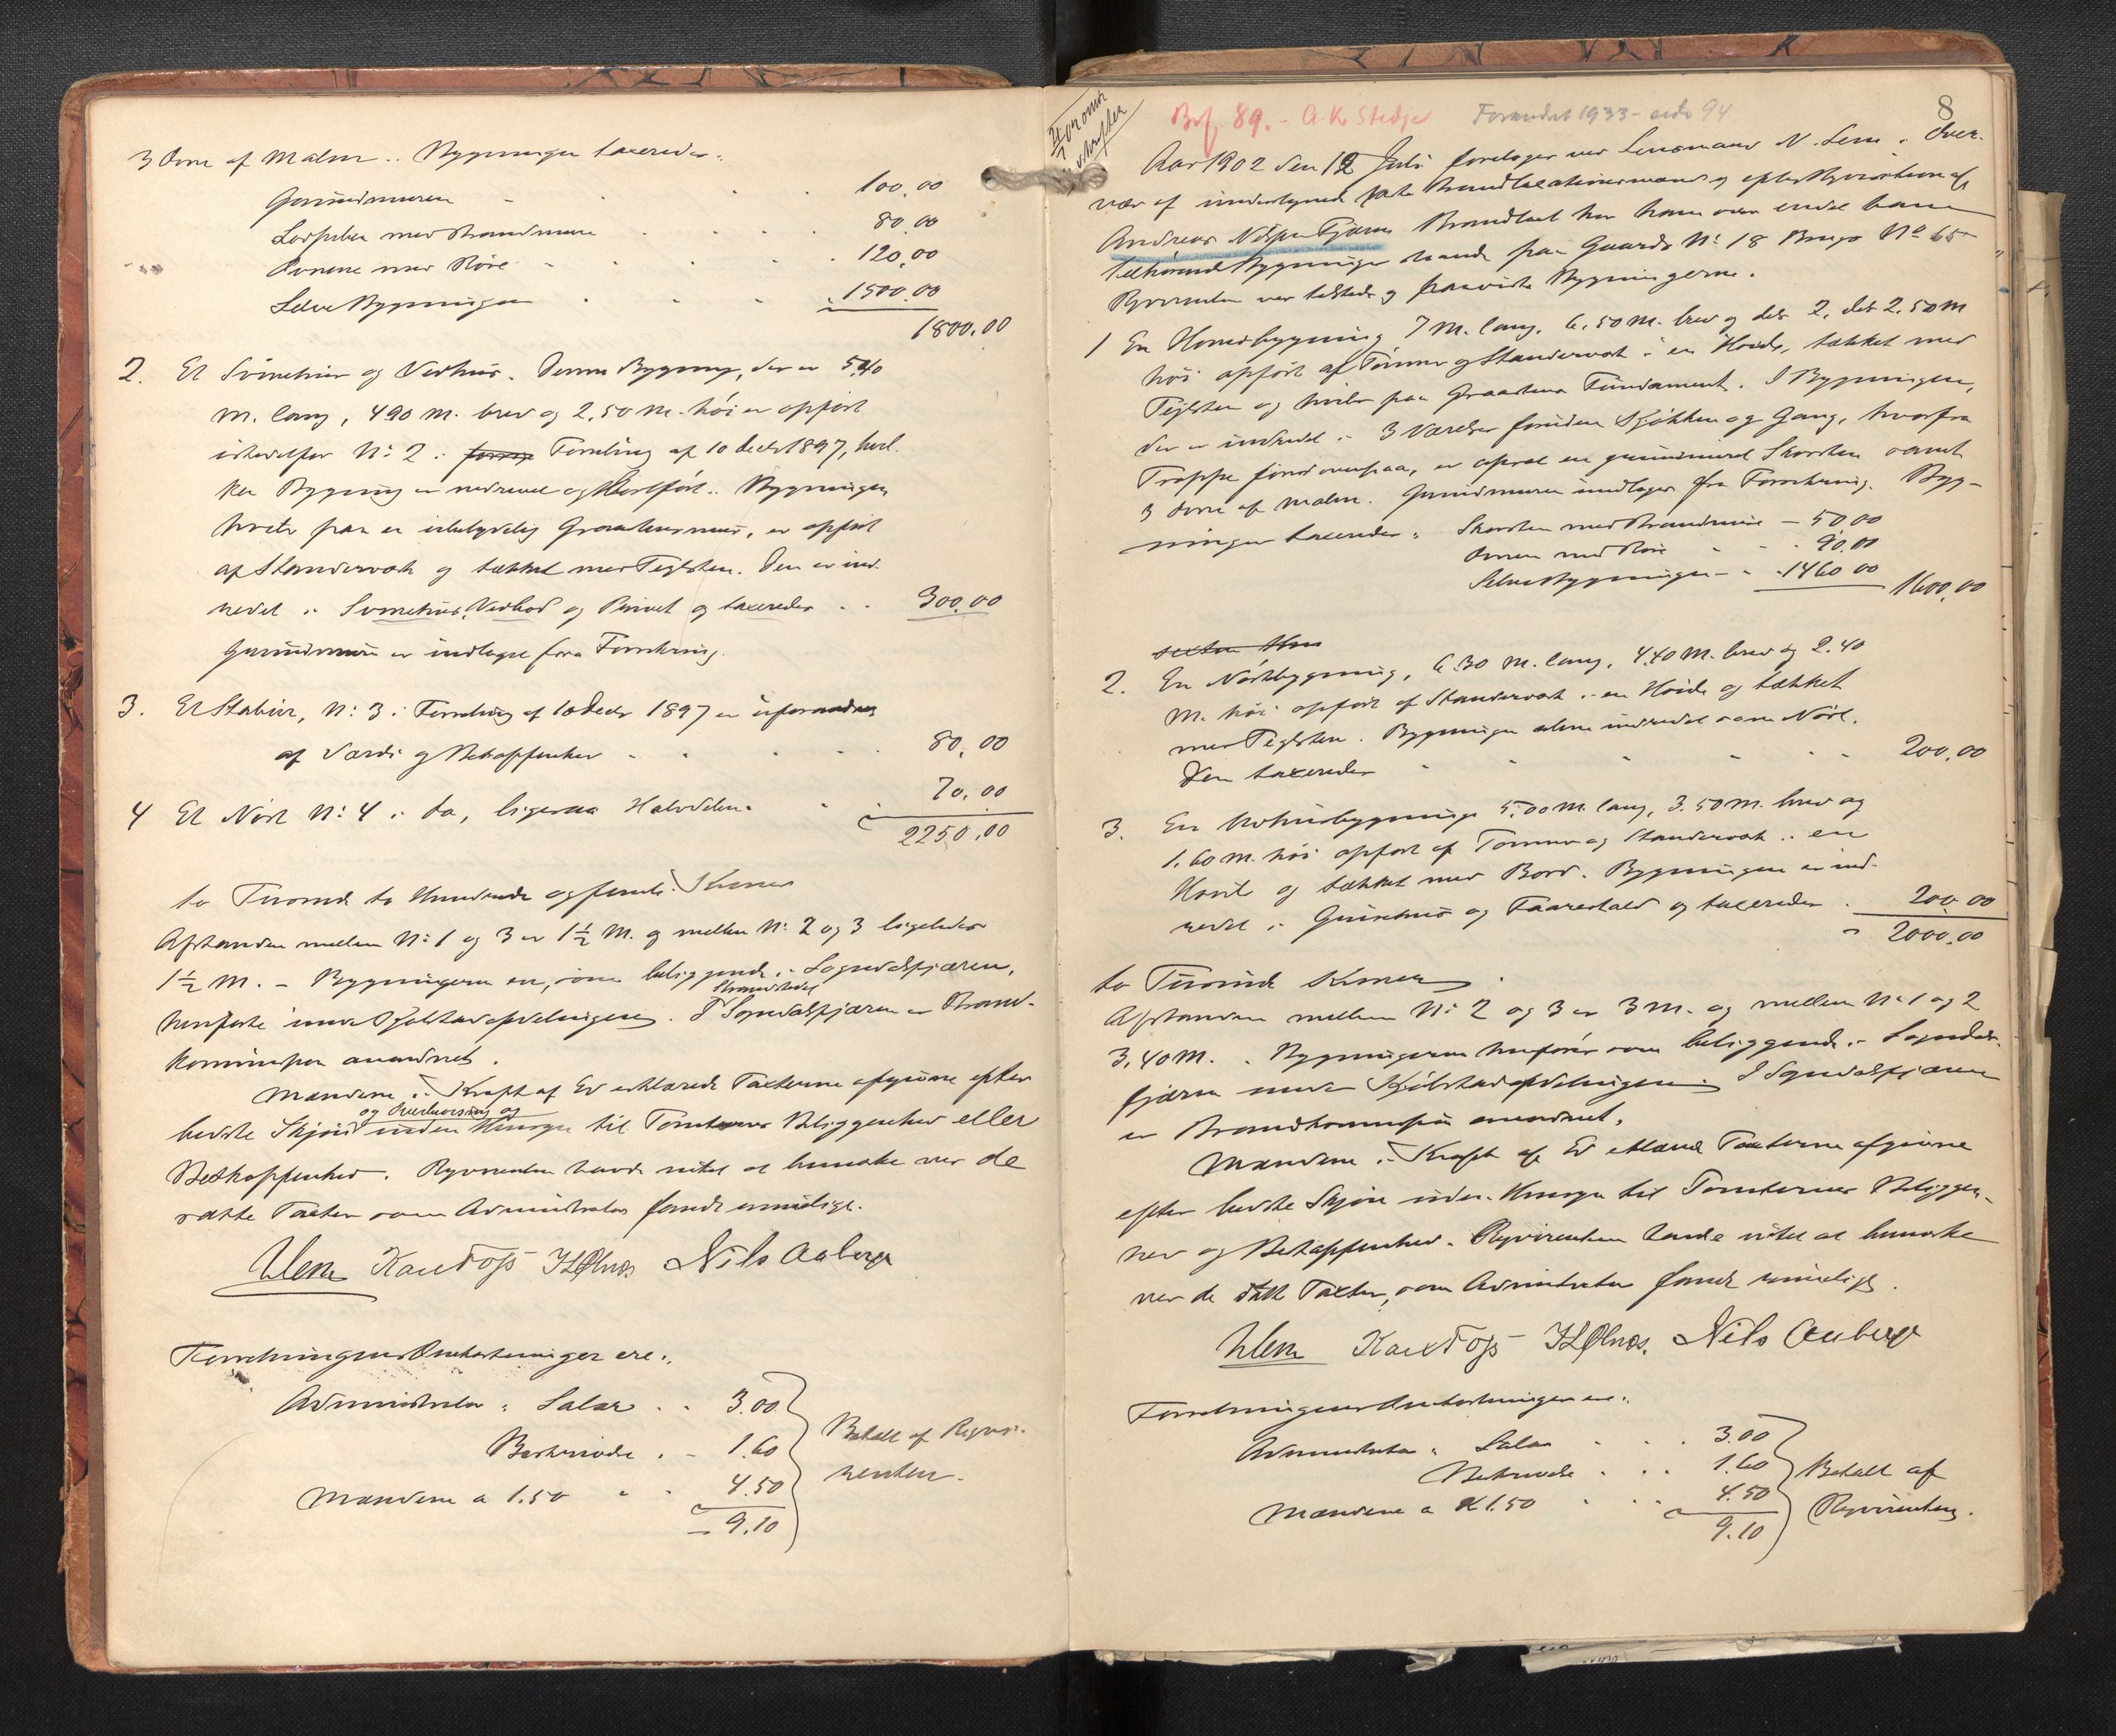 3 Ovne af Malm. Bygningen taxeredes:
Grundmuren 100.00
med Brandmure 80.00
Ovnene med Rør 120,00
Selve Bygningen 1500.00
1800.00
2. Et Svinehus og Vedhus. Denne Bygning, der er 5.40
M. lang, 4.90 M. bred og 2,50 M. høi er opført
istedetfor N: 2 i Forretning af 10 Decbr 1897, hvil-
ken Bygning er nedrevet og bortført. Bygningen
hviler paa en ubetydelig Graastensmur, er opført
af Standerværk og tækket med Teglsten. Den er ind-
redet i Svinehus, Vedbod og Privet og taxeredes 300.00
Grundmuren er indtaget fra Forsikring.
3. Et Stabur, N: 3 i Forretning af 10 Decbr 1897 er uforandret
af Værdi og Beskaffenhed 80.00
4 Et Nøst N: 4 i do, ligesaa Halvdelen 70.00
2250.00
to Tusinde to Hundrede og femti Kroner
Afstanden mellem N: 1 og 3 er 1½ M. og mellem N: 2 og 3 ligeledes
1½ M. – Bygningerne er, som beliggende i Sogndalsfjæren,
henførte under Kjøbstadafdelingen. I Strandstedet Sogndalsfjæren er Brand-
kommission anordnet.
Mændene i Kraft af Ed erklærede Taxterne afgivne efter
bedste Skjøn og Overbevisning og uden Hensyn til Tomternes Beliggenhed eller
Beskaffenhed. Rekvirenten havde intet at bemærke ved de
satte Taxter som Administrator fandt rimelige.
NLem Karl Foss Nils Aaberge
Forretningens Omkostninger ere:
Administrator i Salær 3.00
1.60
Mændene a 1.50 4.50
9.10
Betalt af Rekvi-
renten.
8
Brf. 89. – A. K. Stedje Forandret 1933 – side 94
Aar 1902 den 12 Juli foretoges ved Lensmand N. Lem i Over-
vær af undertegnede Brandtaxationsmænd og efter Rekvisition af
Andreas Nilsen Fjæren Brandtaxt over endel ham
tilhørende Bygninger staaende paa Gaards N: 18 Brugs No 65
Rekvirenten var tilstede og paaviste Bygningerne.
1 En Hovedbygning 7 M. lang, 6,50 M. bred og 2,50 M
høi opført af Tømmer og Standerværk i en Høide, tækket med
Teglsten og hviler paa Graastens Fundament. I Bygningen,
der er indredet i 3 Værelser foruden Kjøkken og Gang, hvorfra
Trappe fører ovenpaa, er opsat en grundmuret Skorsten samt
3 Ovne af Malm. Grundmuren indtages fra Forsikring. Byg-
ningen taxeredes: Skorsten med Brandmure – 50.00
Ovnene med Røre 90.00
Selve Bygningen 1460.00 1600.00
2. En Nøstbygning, 6.30 M. lang, 4.40 M. bred og 2.40
M. høi opført af Standerværk i en Høide og tækket
med Teglsten. Bygningen alene indredet som Nøst.
Den taxeredes 200.00
3. En Uthusbygning 5.00 M. lang, 3.50 M. bred og
1.60 M. høi opført af Tømmer og Standerværk i en
Høide og tækket med Bord. Bygningen er ind-
redet i Grisehus og Faarestald og taxeredes 200.00
2000.00
to Tusinde Kroner
Afstanden mellem N: 2 og 3 er 3 M. og mellem N: 1 og 2
3,40 M. Bygningerne henføres som beliggende i Sogndals-
fjæren under Kjøbstadafdelingen. I Sogndalsfjæren
er Brandkommission anordnet.
Mændene i Kraft af Ed erklærede Taxterne afgivne
efter bedste Skjøn uden Hensyn til Tomternes Beliggen-
hed og Beskaffenhed. Rekvirenten havde intet at bemærke
ved de satte Taxter, som Administrator fandt rimelige.
NLem Karl Foss Nils Aaberge
Forretningens Omkostninger ere:
Administrator i Salær 3.00
1.60
Mændene a K 1.50 4.50
9.10
Betalt af
Rekvirenten.